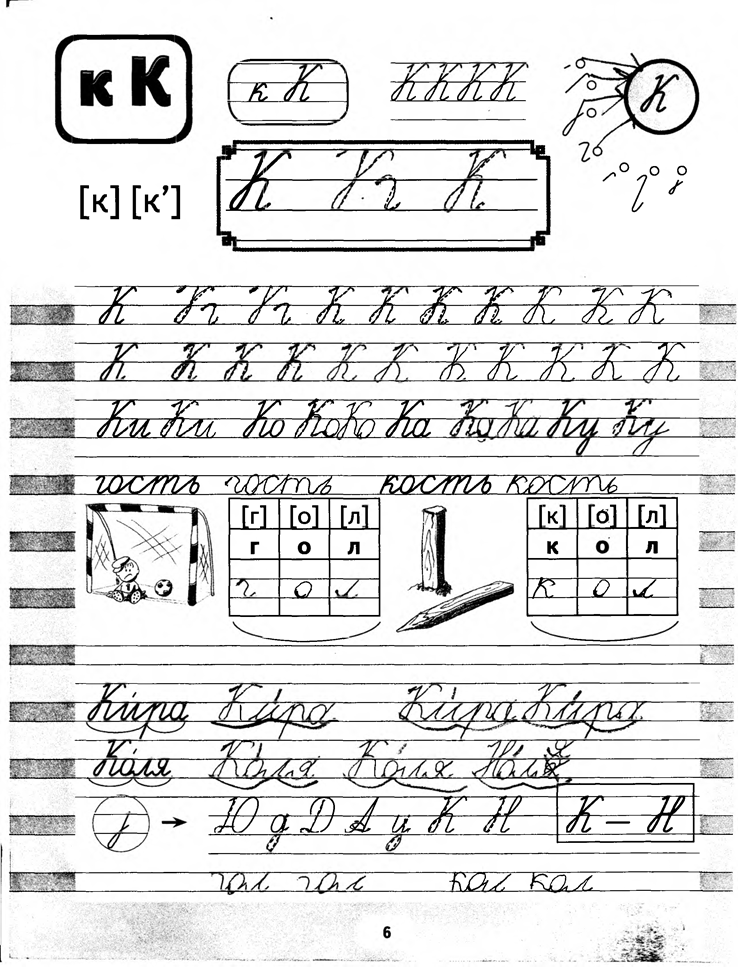 к К
к К
К К К К
К
[к] [к’]
К К
К К К К К К К К
К К К К К К К К К К К
Ки Ки Ко Ко Ко Ка Ка Ка Ку Ку
гость гость кость кость
[г] [о] [л]
г о л
г о л
[к] [о] [л]
к о л
к о л
Ки́ра Ки́ра Ки́ра Ки́ра
Ко́ля Ко́ля Ко́ля
Ю д Д А у К Н К – Н
гол гол кол кол
6